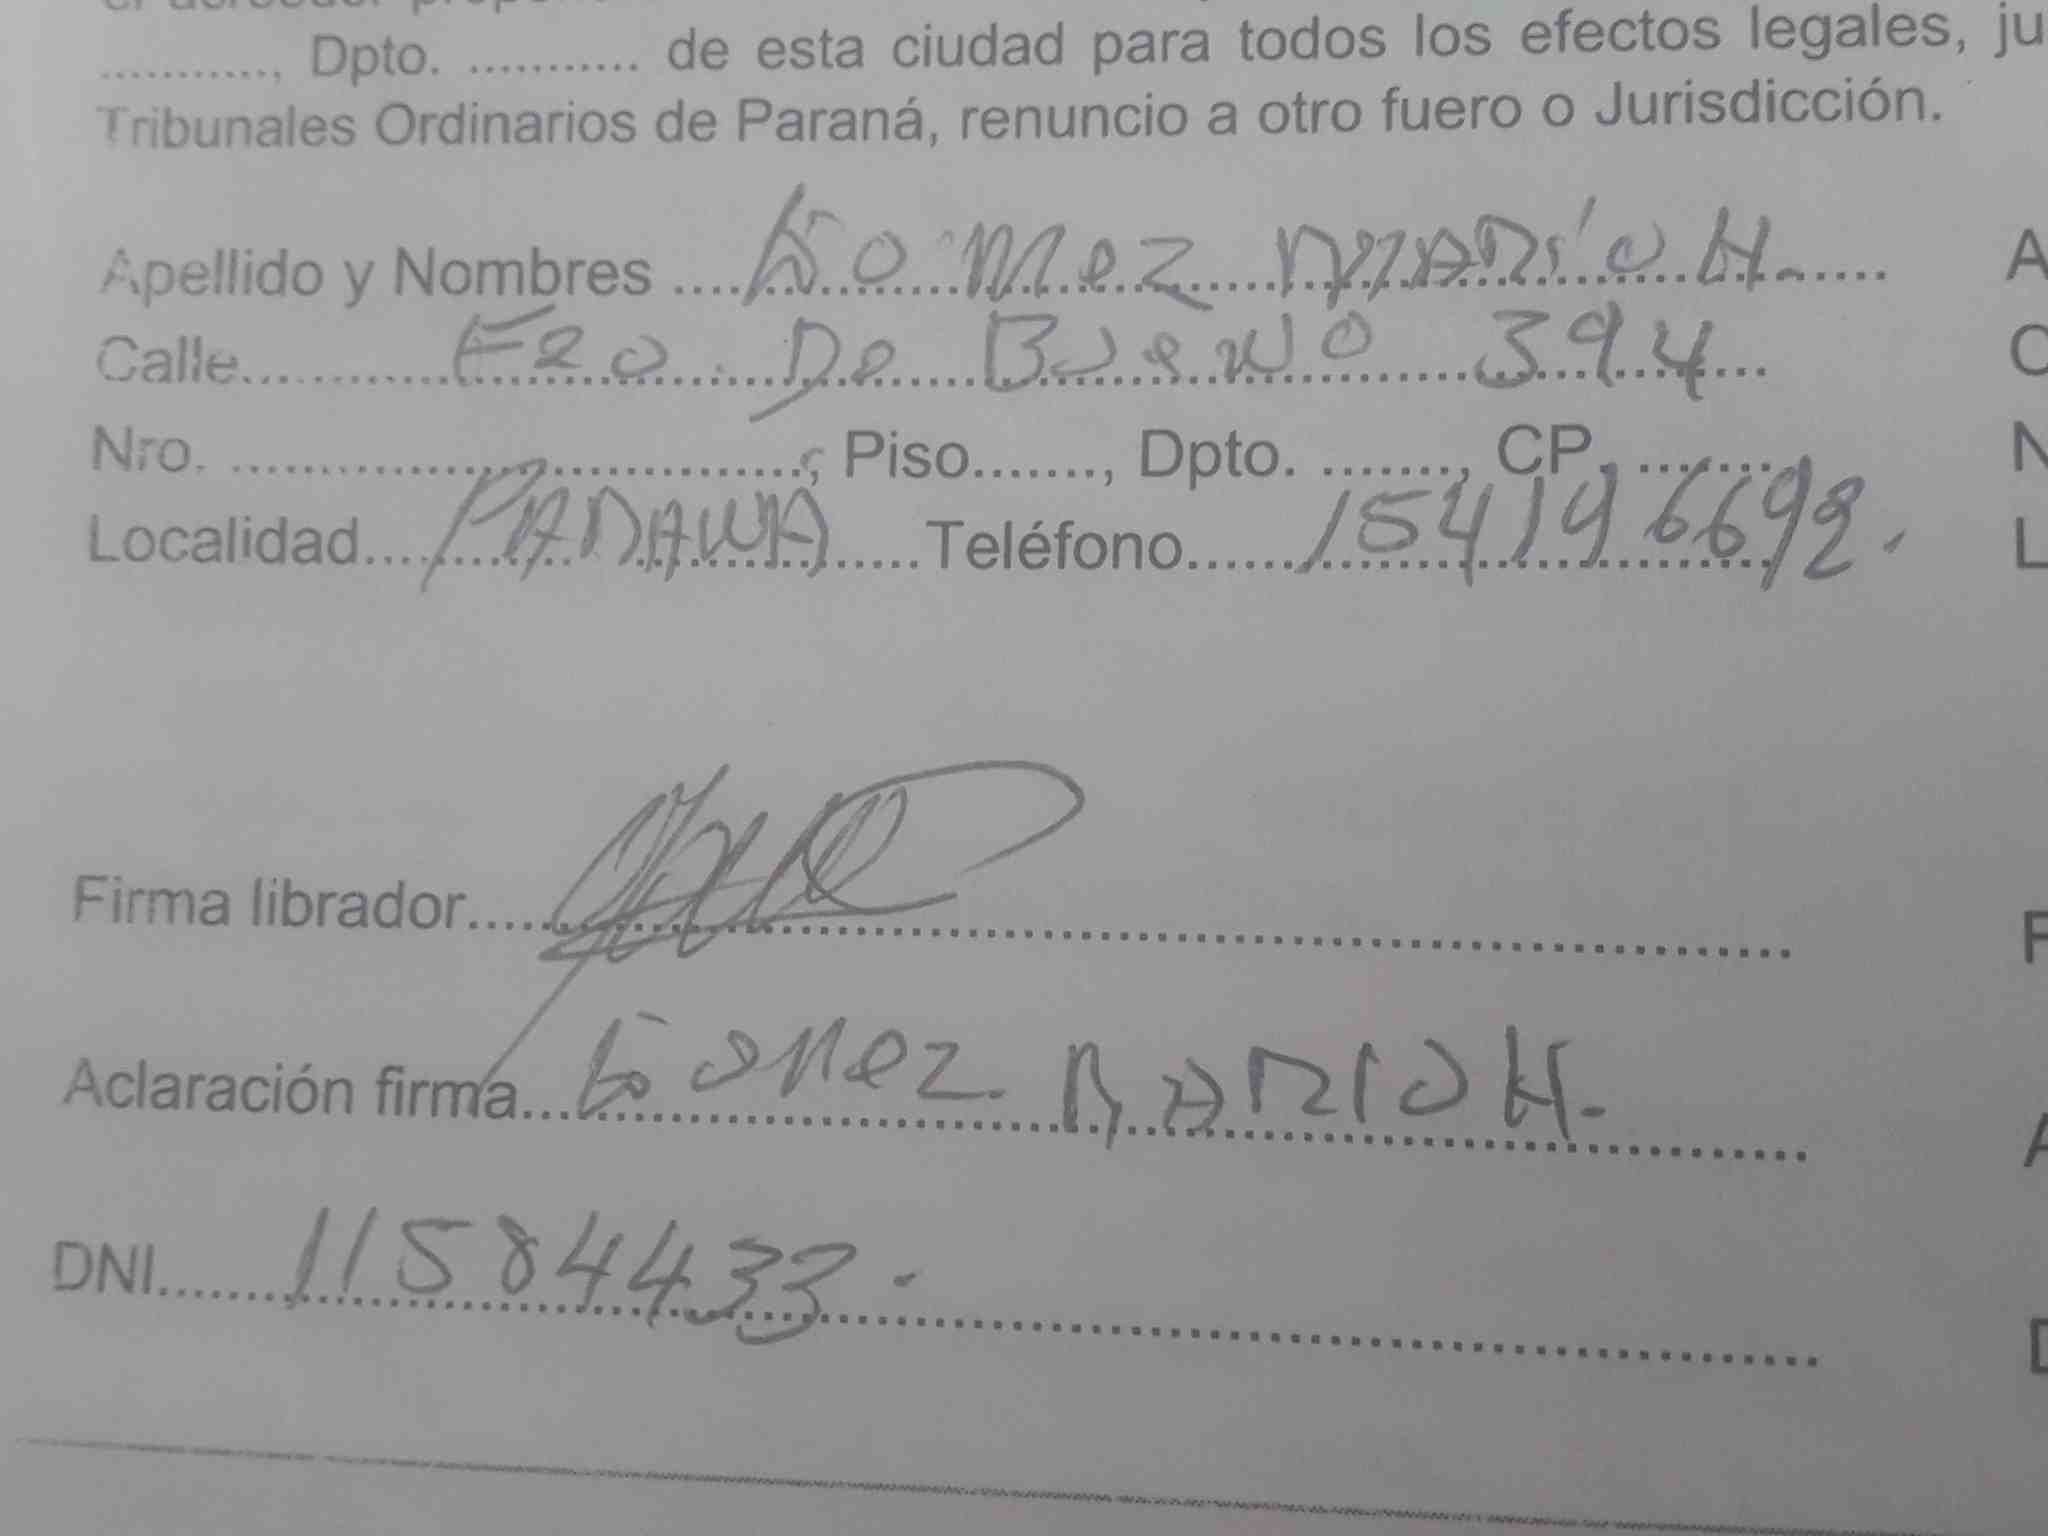 ............, Dpto. ........... de esta ciudad para todos los efectos legales, ju
Tribunales Ordinarios de Paraná, renuncio a otro fuero o Jurisdicción.
Apellido y Nombres .... Gomez MARIO H. ...... A
Calle.......... Fco. De Bueno 394 ... C
Nro. .............................., Piso......., Dpto. ........, CP. ........ N
Localidad.... PARANA .....Teléfono...... 154196692. L
Firma librador............................................................ F
Aclaración firma... Gomez MARIO H. ............ A
DNI....... 11584433. ............................ D